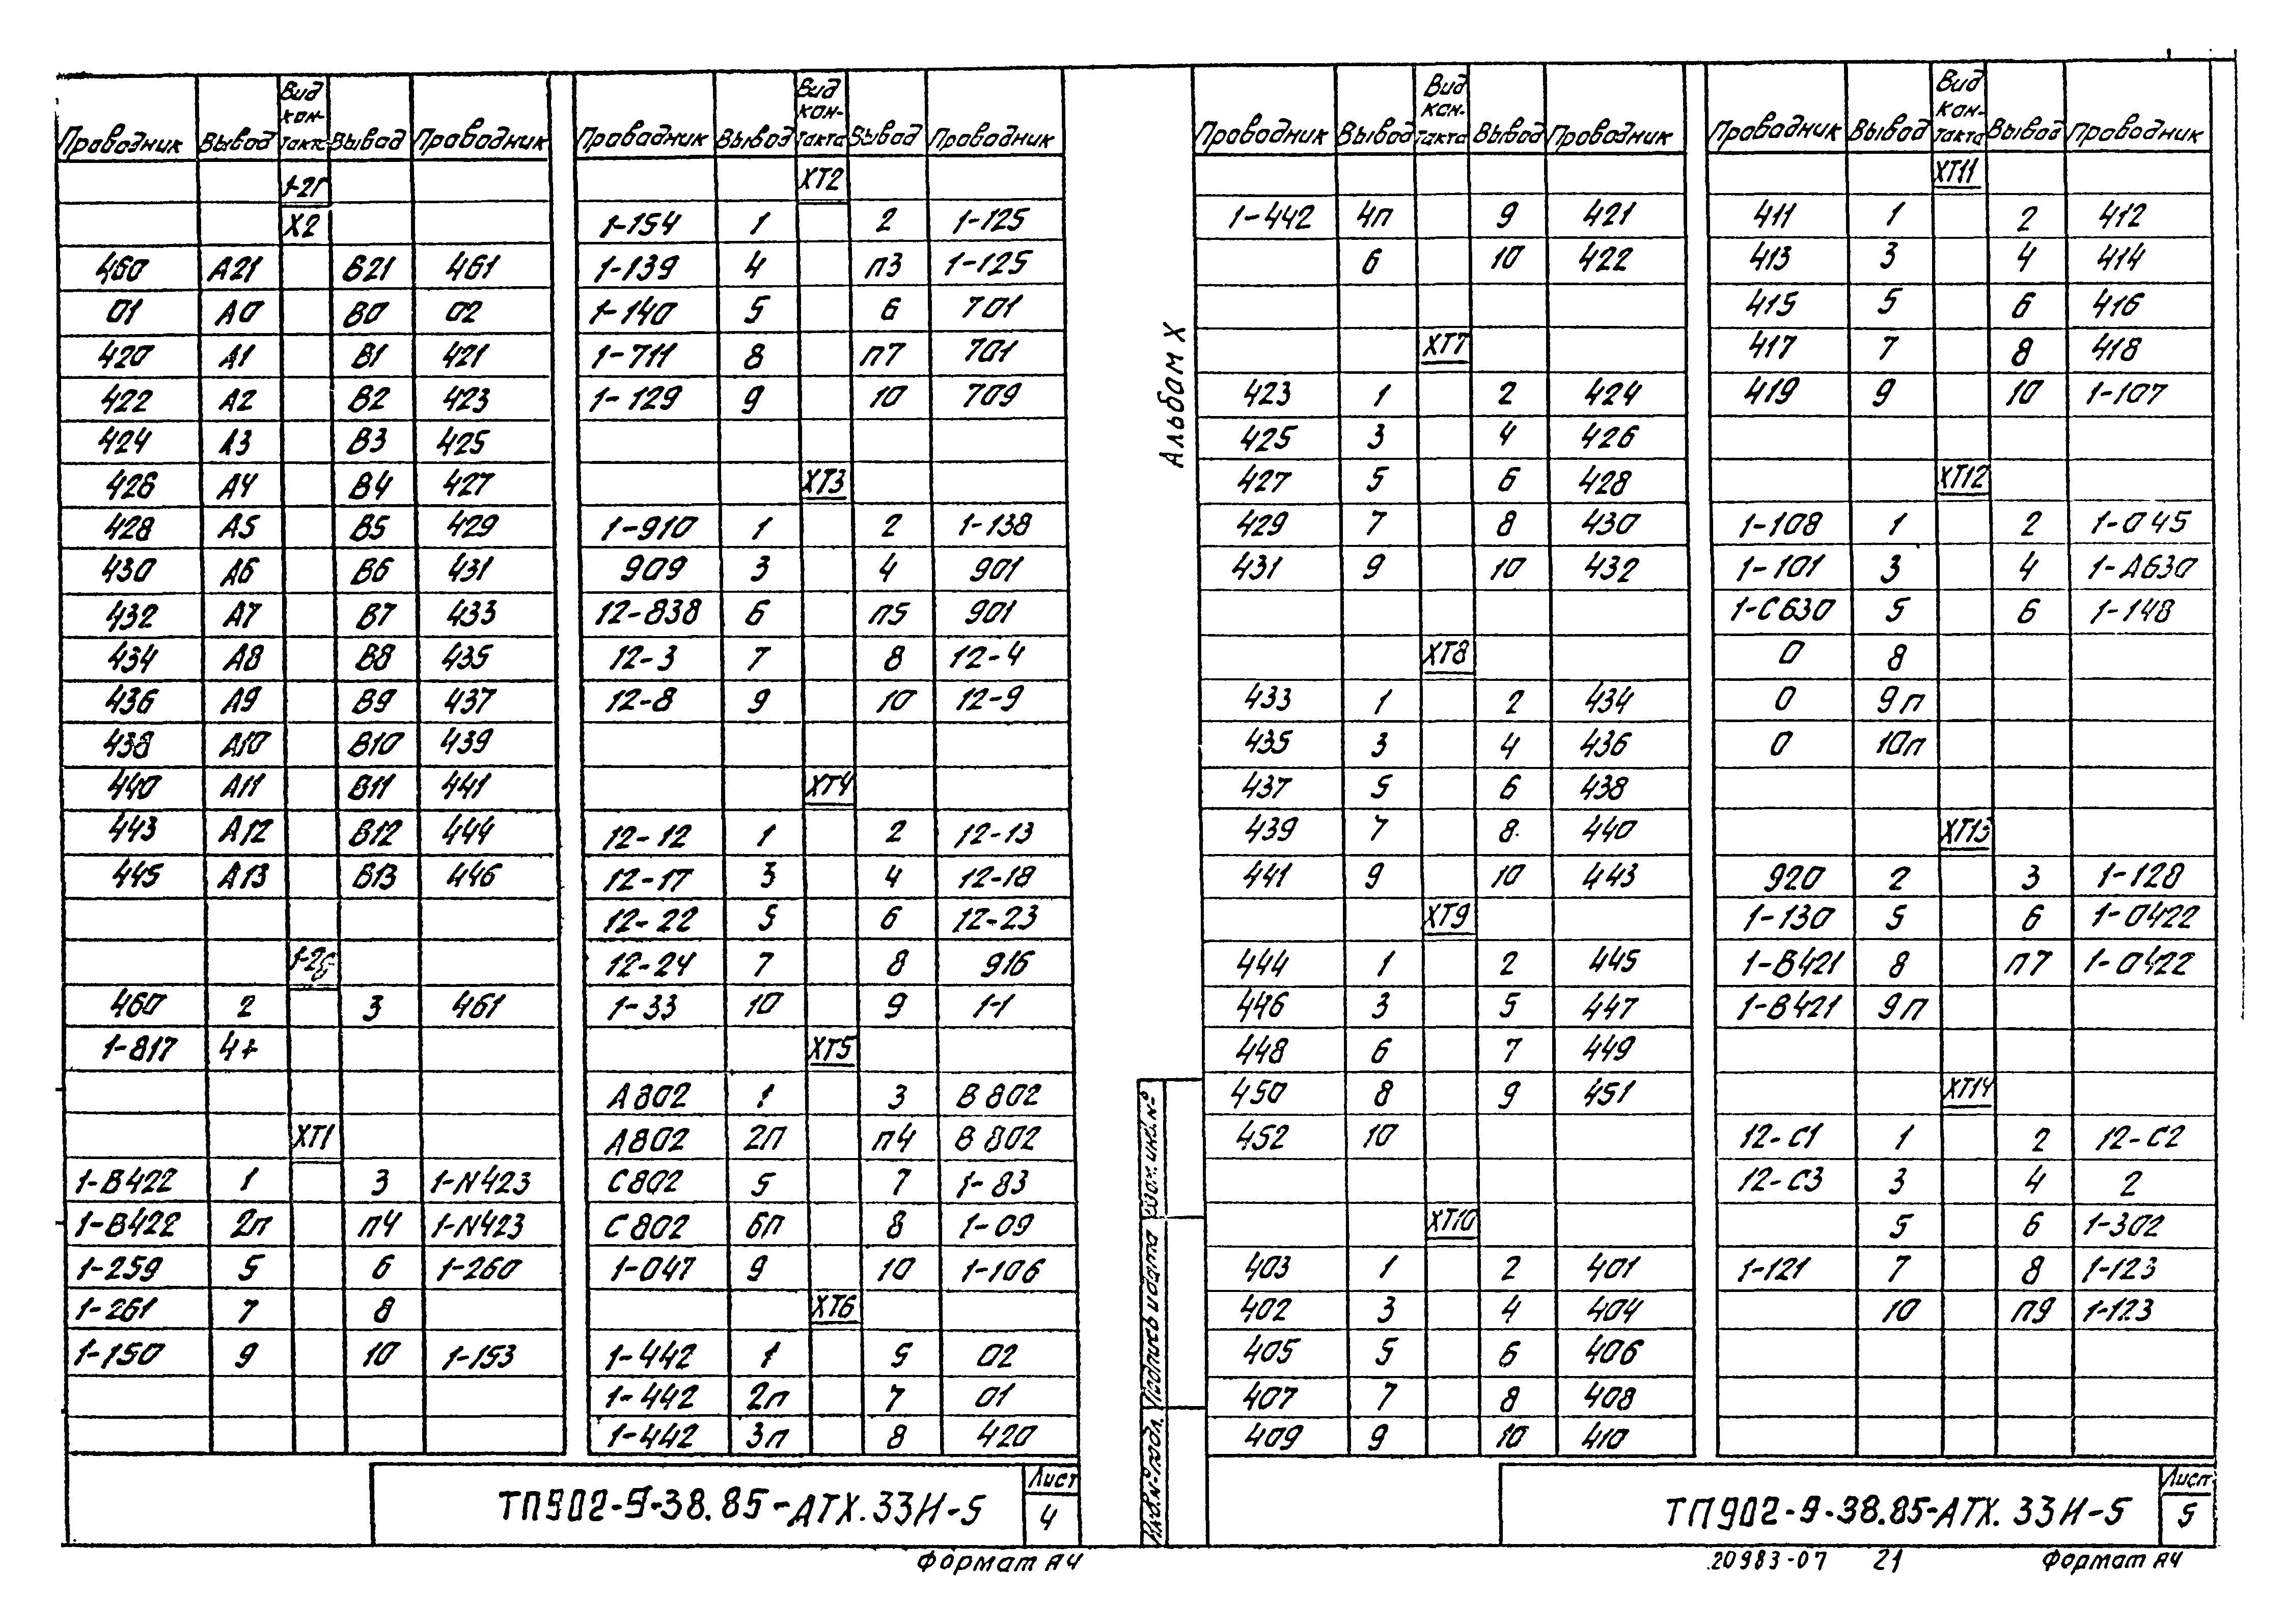 Проводник Вывод Вид контакта Вывод Проводник
1-2Г
X2
460 А21 В21 461
01 А0 В0 02
420 А1 В1 421
422 А2 В2 423
424 А3 В3 425
426 А4 В4 427
428 А5 В5 429
430 А6 В6 431
432 А7 В7 433
434 А8 В8 435
436 А9 В9 437
438 А10 В10 439
440 А11 В11 441
443 А12 В12 444
445 А13 В13 446
460 2 3 461
1-817 4+
XT1
1-В422 1 3 1-N423
1-В422 2п п4 1-N423
1-259 5 6 1-260
1-261 7 8
1-150 9 10 1-153
Проводник Вывод Вид контакта Вывод Проводник
XT2
1-154 1 2 1-125
1-139 4 п3 1-125
1-140 5 6 701
1-711 8 п7 701
1-129 9 10 709
XT3
1-910 1 2 1-138
909 3 4 901
12-838 6 п5 901
12-3 7 8 12-4
12-8 9 10 12-9
XT4
12-12 1 2 12-13
12-17 3 4 12-18
12-22 5 6 12-23
12-24 7 8 916
1-33 10 9 1-1
XT5
А802 1 3 В802
А802 2П п4 В802
С802 5 7 1-83
С802 6П 8 1-09
1-047 9 10 1-106
XT6
1-442 1 5 02
1-442 2п 7 01
1-442 3п 8 420
ТП902-9-38.85-АТХ.33И-5
Лист
4
Формат А4
Альбом X
Проводник Вывод Вид контакта Вывод Проводник
1-442 4п 9 421
6 10 422
XT7
423 1 2 424
425 3 4 426
427 5 6 428
429 7 8 430
431 9 10 432
XT8
433 1 2 434
435 3 4 436
437 5 6 438
439 7 8 440
441 9 10 443
XT9
444 1 2 445
446 3 5 447
448 6 7 449
450 8 9 451
452 10
XT10
403 1 2 401
402 3 4 404
405 5 6 406
407 7 8 408
409 9 10 410
Проводник Вывод Вид контакта Вывод Проводник
XT11
411 1 2 412
413 3 4 414
415 5 6 416
417 7 8 418
419 9 10 1-107
XT12
1-108 1 2 1-045
1-101 3 4 1-А630
1-С630 5 6 1-148
0 8
0 9п
0 10п
XT13
920 2 3 1-128
1-130 5 6 1-0422
1-В421 8 п7 1-0422
1-В421 9п
XT14
12-С1 1 2 12-С2
12-С3 3 4 2
5 6 1-302
1-121 7 8 1-123
10 п9 1-123
Инв.№ подл. Подпись и дата Взам. инв. №
ТП902-9-38.85-АТХ.33И-5
Лист
5
20983-07 21 Формат А4